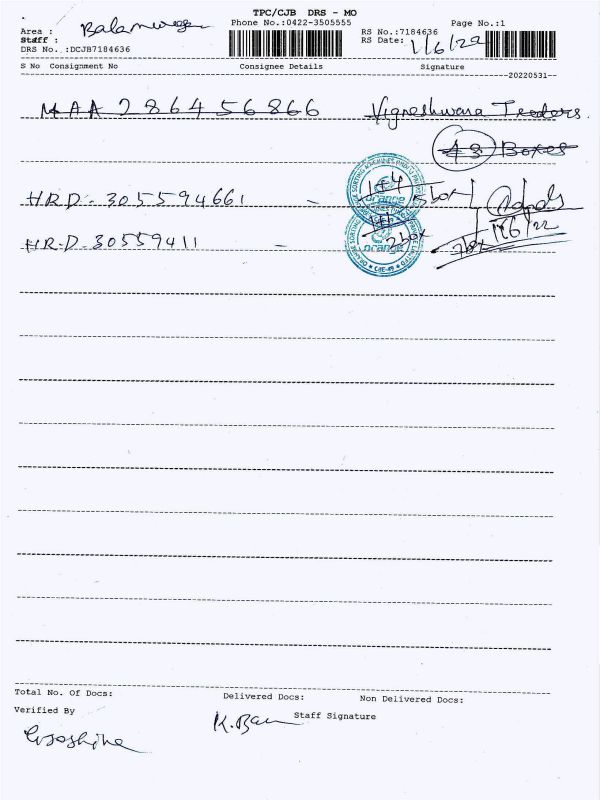 TPC/CJB DRS - MO
Area : Balamurugan Phone No.:0422-3505555 Page No.:1
Staff : RS No.:7184636
DRS No. :DCJB7184636 RS Date: 1/6/22
S No Consignment No Consignee Details Signature
20220531
MAA 286456866 Vigneshwara Traders.
43 Boxes
HRD - 305594661 - 1+4 5box
HRD 30559411 - 1+1 2box 7box 1/6/22
orange
orange
CBE-49
Total No. Of Docs: Delivered Docs: Non Delivered Docs:
Verified By Staff Signature
K.Ban